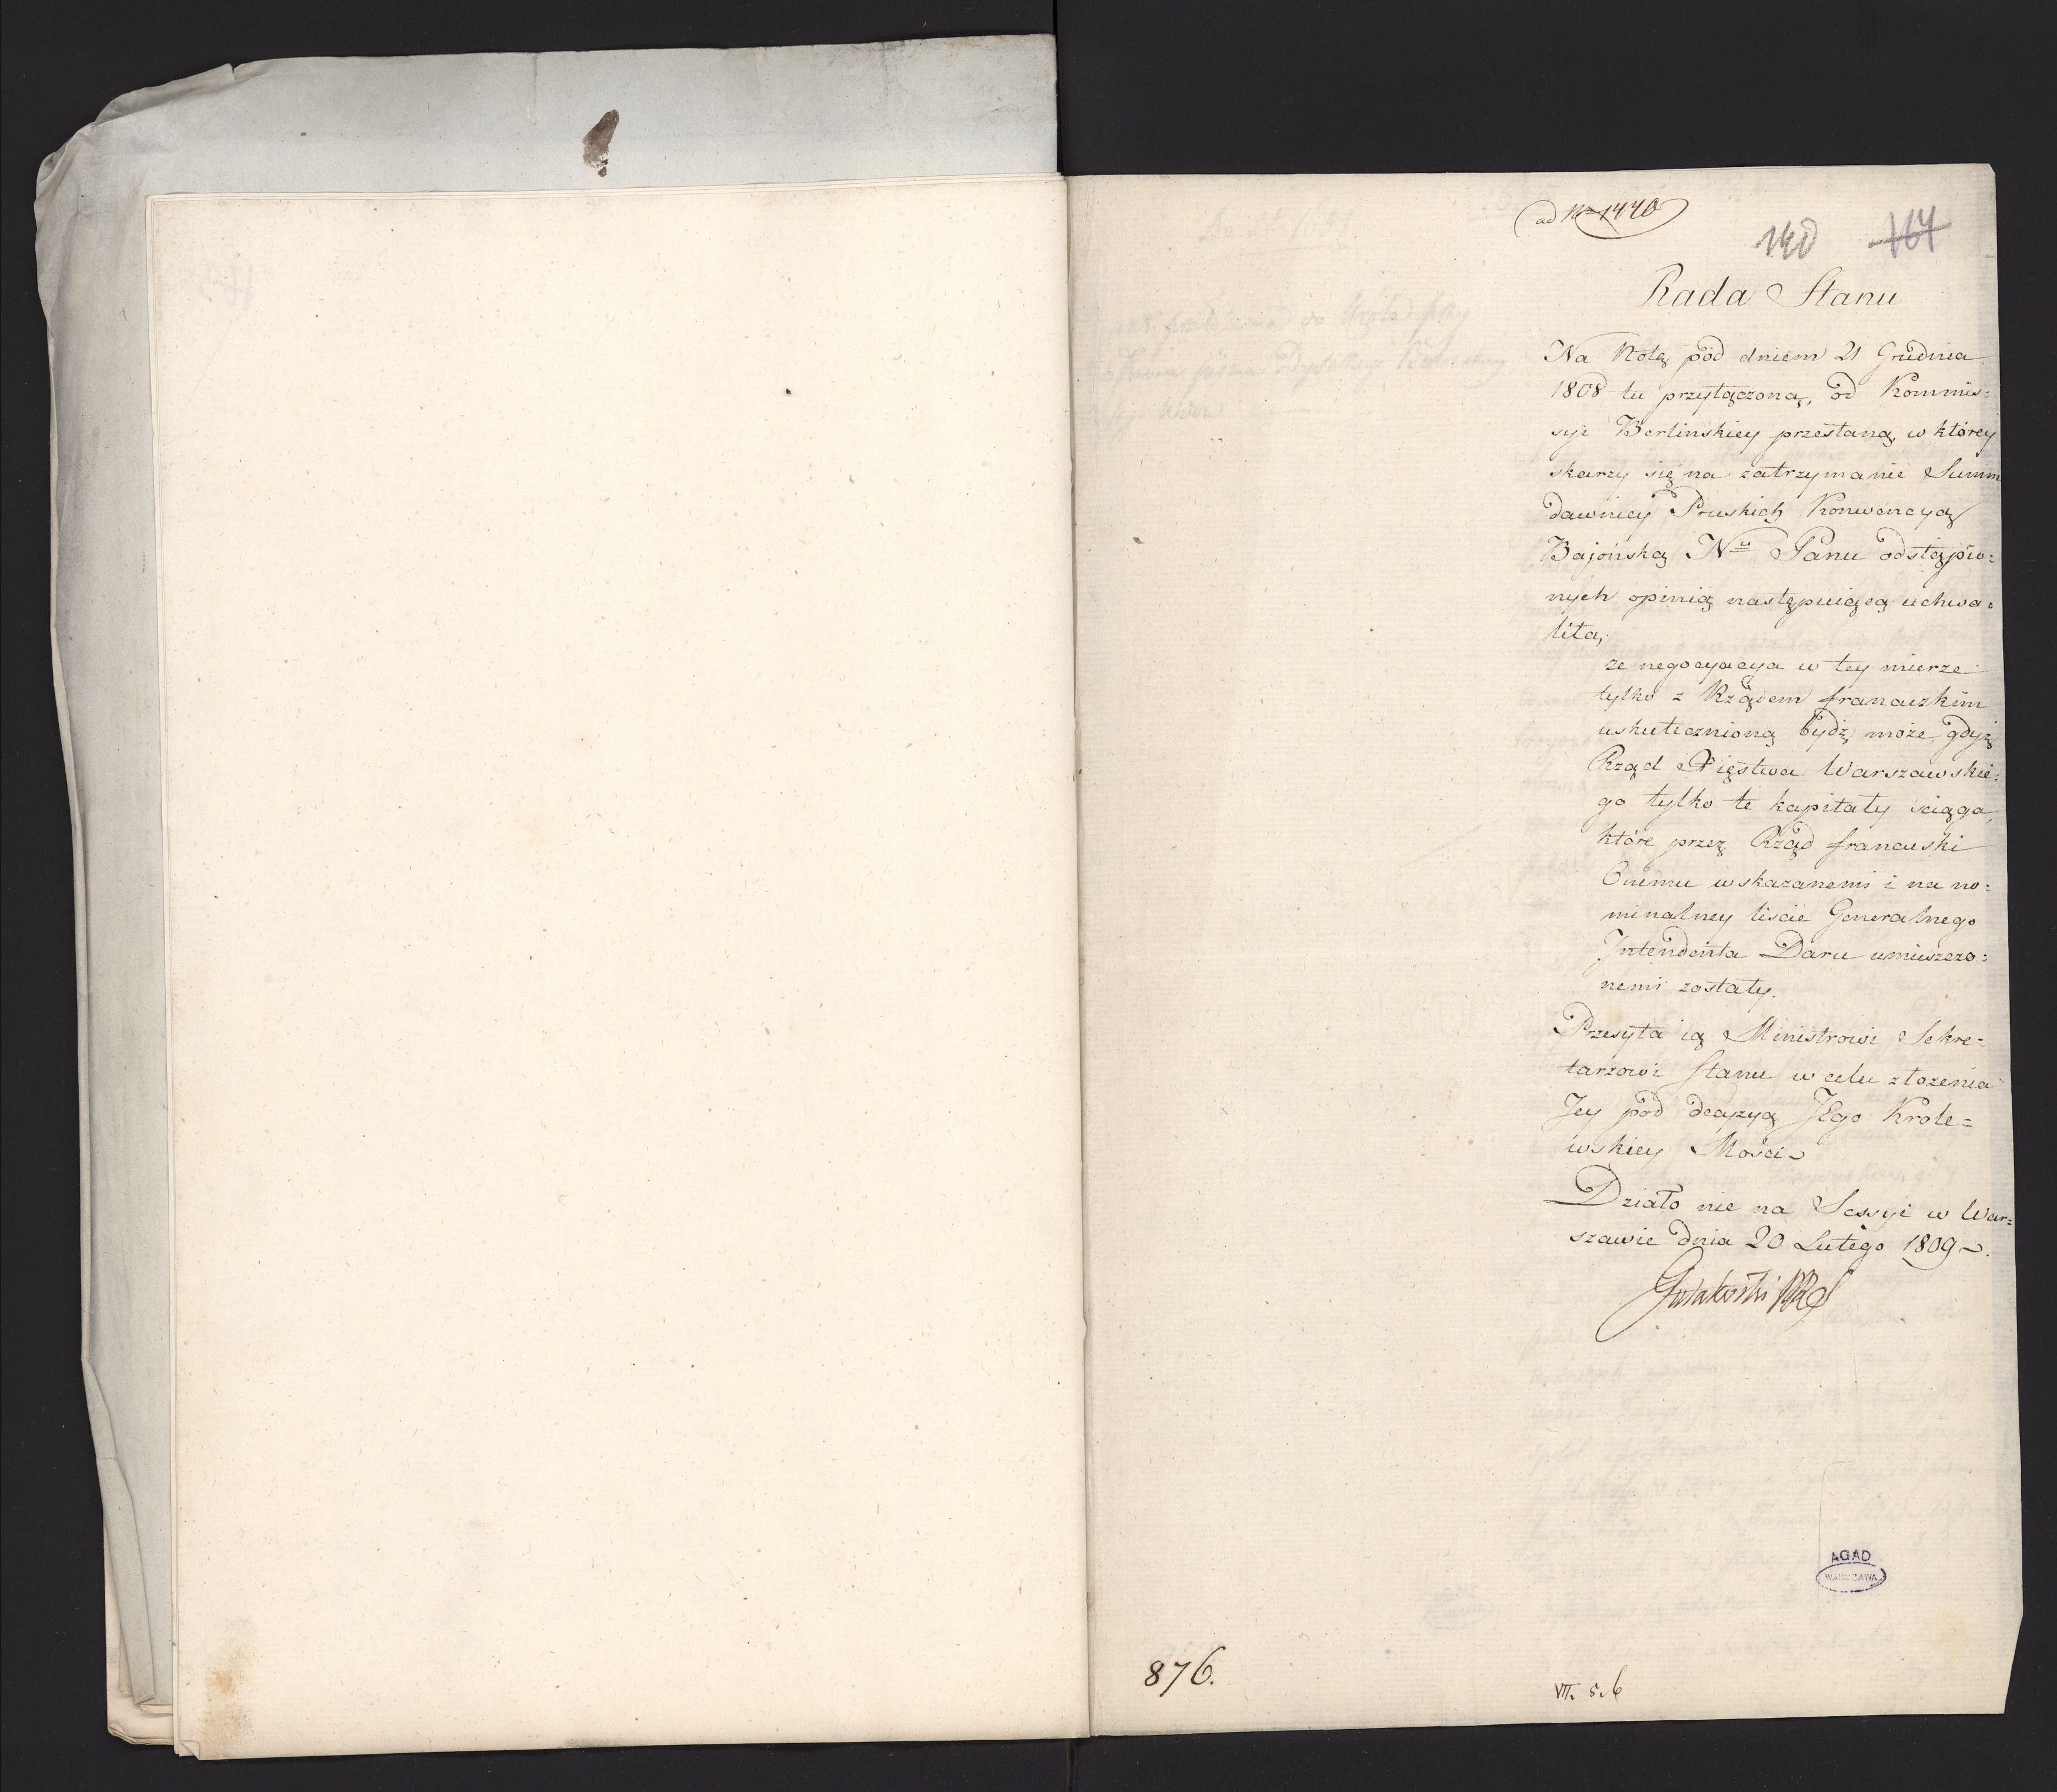 ad Nro 1440
140 164
Rada Stanu
Na Notę pod dniem 21 Grudnia
1808 tu przyłączoną, od Kommis=
syi Berlinskiey przesłaną, w którey
skarzy się na zatrzymanie Summ
dawniey Pruskich Konwencyą
Bajońską Nu Panu odstąpio=
nych opinią następuiącą uchwa=
liła,
ze negocyacya w tey mierze
tylko z Rządem francuzkim
uskutecznioną bydź może, gdyż
Rząd Xięstwa Warszawskie=
go tylko te kapitały sciąga,
które przez Rząd francuski
Onemu wskazanemi i na no=
minalney liscie Generalnego
Intendenta Daru umieszczo=
nemi zostały.
Przesyła ią Ministrowi Sekre=
tarzowi Stanu w celu złożenia
Jey pod decyzyą JEgo Krole=
wskiey Mości
Działo się na Sessyi w War=
szawie dnia 20 Lutego 1809
AGAD
WARSZAWA
876.
VII. 5.6